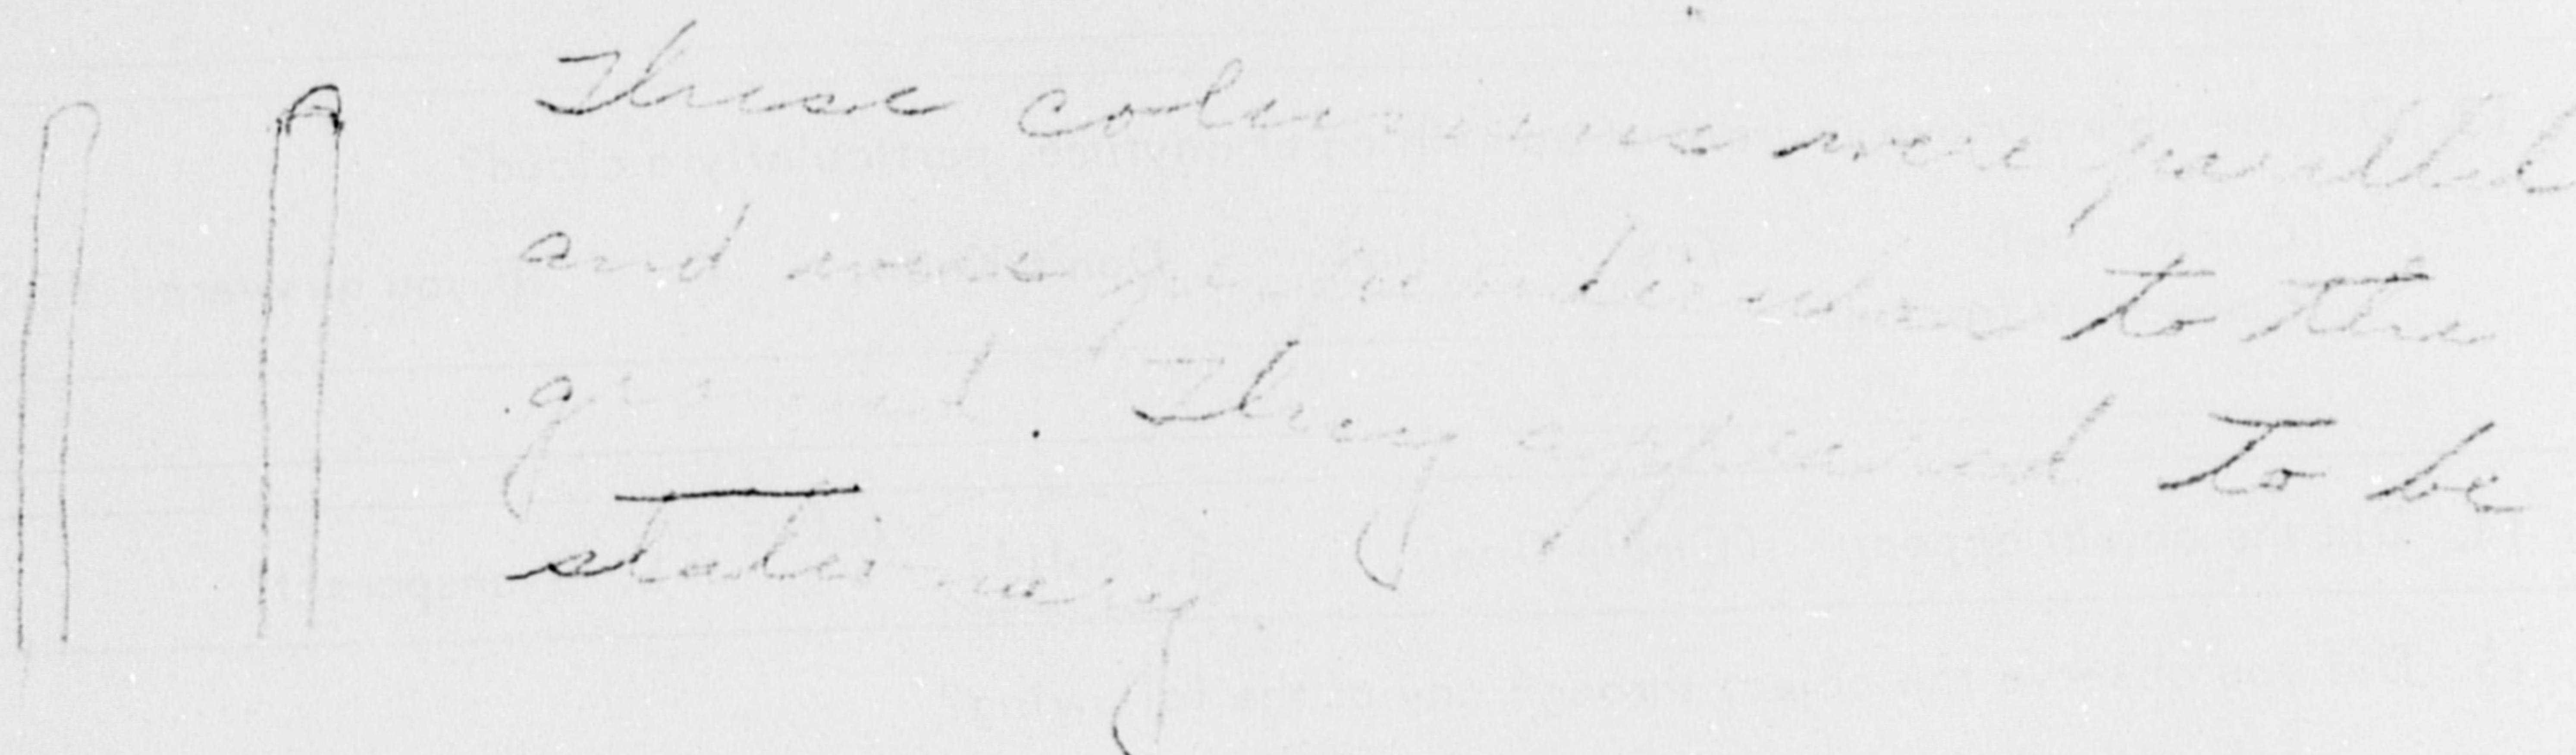 These columns were parallel
and were perpendicular to the
ground. They appeared to be
stationary